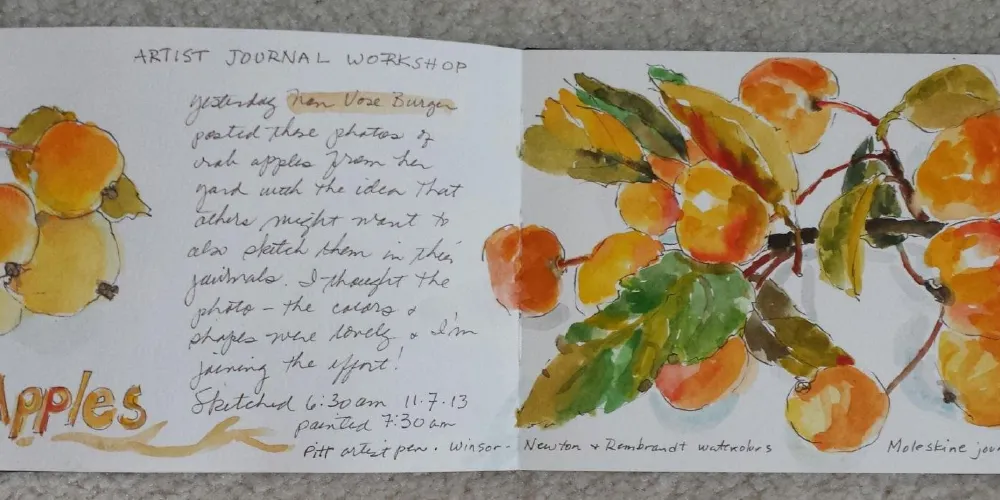 ARTIST JOURNAL WORKSHOP
yesterday Nan Vose Burger
posted these photos of
crab apples from her
yard with the idea that
others might want to
also sketch them in their
journals. I thought the
photo - the colors &
shapes were lovely & I'm
joining the effort!
Sketched 6:30am 11.7.13
painted 7:30am
Apples
Pitt artist pen. Winsor-Newton & Rembrandt watercolors
Moleskine jour